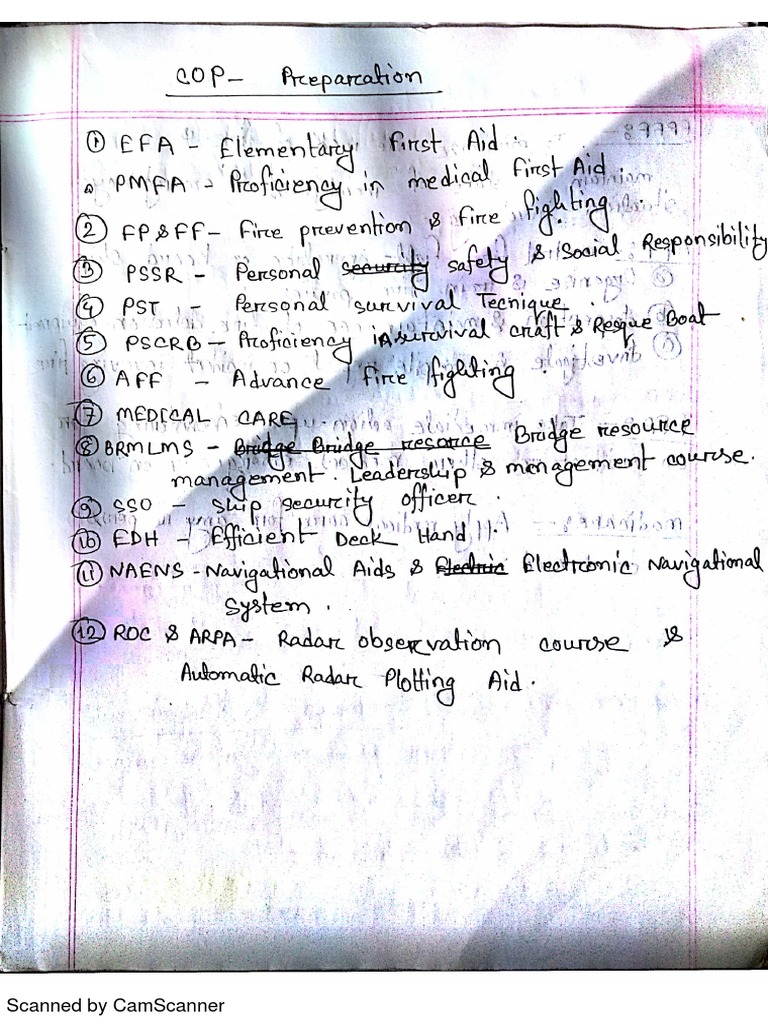 COP- Preparation
① EFA - Elementary First Aid.
PMFA - Proficiency in medical First Aid.
② FP&FF- Fire prevention & fire fighting.
③ PSSR - Personal security safety & Social Responsibility
④ PST - Personal survival Tecnique.
⑤ PSCRB - Proficiency in survival craft & Resque Boat.
⑥ AFF - Advance fire fighting.
⑦ MEDICAL CARE
⑧ BRMLMS - Bridge Bridge resorce Bridge resource
management. Leadership & management course.
⑨ SSO - Ship security officer.
⑩ EDH - Efficient Deck Hand.
⑪ NAENS - Navigational Aids & Electric Electronic Navigational
System.
⑫ ROC & ARPA- Radar observation course &
Automatic Radar Plotting Aid.
Scanned by CamScanner